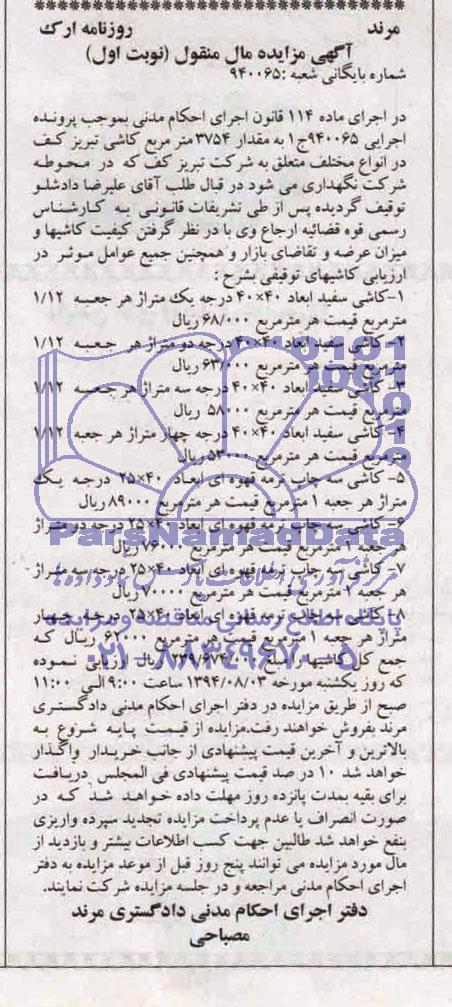 مرند روزنامه ارک
آگهی مزایده مال منقول (نوبت اول)
شماره بایگانی شعبه :۹۴۰۰۶۵
در اجرای ماده ۱۱۴ قانون اجرای احکام مدنی بموجب پرونده
اجرایی ۹۴۰۰۶۵ج۱ به مقدار ۳۷۵۴ متر مربع کاشی تبریز کف
در انواع مختلف متعلق به شرکت تبریز کف که در محوطه
شرکت نگهداری می شود در قبال طلب آقای علیرضا دادشلو
توقیف گردیده پس از طی تشریفات قانونی به کارشناس
رسمی قوه قضائیه ارجاع وی با در نظر گرفتن کیفیت کاشیها و
میزان عرضه و تقاضای بازار و همچنین جمیع عوامل موثر در
ارزیابی کاشیهای توقیفی بشرح :
۱-کاشی سفید ابعاد ۴۰×۴۰ درجه یک متراژ هر جعبه ۱/۱۲
مترمربع قیمت هر مترمربع ۶۸/۰۰۰ ریال
۲- کاشی سفید ابعاد ۴۰×۴۰ درجه دو متراژ هر جعبه ۱/۱۲
مترمربع قیمت هر مترمربع ۶۳/۰۰۰ ریال
۳- کاشی سفید ابعاد ۴۰×۴۰ درجه سه متراژ هر جعبه ۱/۱۲
مترمربع قیمت هر مترمربع ۵۸۰۰۰ ریال
۴- کاشی سفید ابعاد ۴۰×۴۰ درجه چهار متراژ هر جعبه ۱/۱۲
مترمربع قیمت هر مترمربع ۵۳۰۰۰ ریال
۵- کاشی سه چاپ ترمه قهوه ای ابعاد ۴۰×۲۵ درجه یک
متراژ هر جعبه ۱ مترمربع قیمت هر مترمربع ۸۹۰۰۰ ریال
۶- کاشی سه چاپ ترمه قهوه ای ابعاد ۴۰×۲۵ درجه دو متراژ
هر جعبه ۱ مترمربع قیمت هر مترمربع ۷۶۰۰۰ ریال
ParsNamadData
۷- کاشی سه چاپ ترمه قهوه ای ابعاد ۴۰×۲۵ درجه سه متراژ
مرکز فرآوری اطلاعات پارس نماد داده ها
هر جعبه ۱ مترمربع قیمت هر مترمربع ۷۰۰۰۰ ریال
۸- کاشی سه چاپ ترمه قهوه ای ابعاد ۴۰×۲۵ درجه چهار
پایگاه اطلاع رسانی مناقصه و مزایده
متراژ هر جعبه ۱ مترمربع قیمت هر مترمربع ۶۲۰۰۰ ریال که
جمع کل کاشیها مبلغ ریال ارزیابی نموده
۰۲۱-۸۸۳۴۹۶۷۰-۵
که روز یکشنبه مورخه ۱۳۹۴/۰۸/۰۳ ساعت ۹:۰۰ الی ۱۱:۰۰
صبح از طریق مزایده در دفتر اجرای احکام مدنی دادگستری
مرند بفروش خواهند رفت.مزایده از قیمت پایه شروع به
بالاترین و آخرین قیمت پیشنهادی از جانب خریدار واگذار
خواهد شد ۱۰ در صد قیمت پیشنهادی فی المجلس دریافت
برای بقیه بمدت پانزده روز مهلت داده خواهد شد که در
صورت انصراف یا عدم پرداخت مزایده تجدید سپرده واریزی
بنفع خواهد شد طالبین جهت کسب اطلاعات بیشتر و بازدید از
مال مورد مزایده می توانند پنج روز قبل از موعد مزایده به دفتر
اجرای احکام مدنی مراجعه و در جلسه مزایده شرکت نمایند.
دفتر اجرای احکام مدنی دادگستری مرند
مصباحی